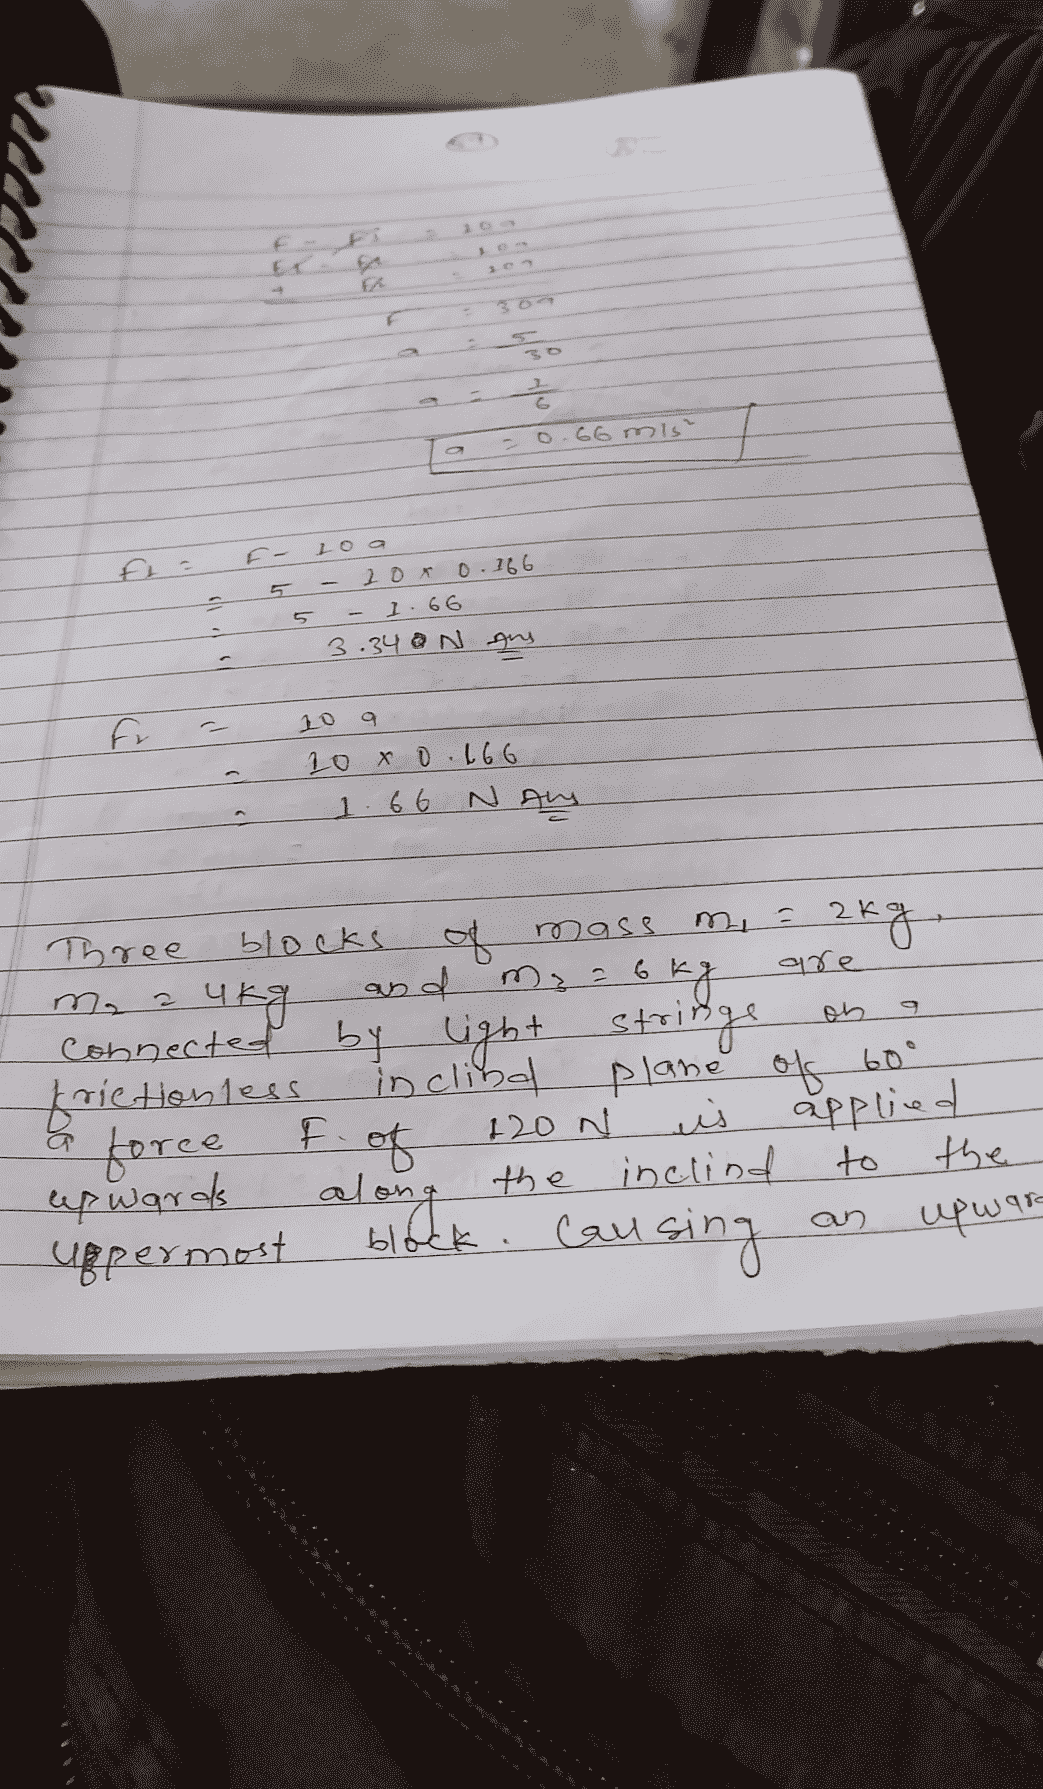 F - F1 = 10a
F1 - F2 = 10a
+ F2 = 10a
F = 30a
a = 5/30
a = 1/6
a = 0.66 m/s²
F1 = F - 10a
= 5 - 10 x 0.166
= 5 - 1.66
= 3.340 N Ans
F2 = 10 a
= 10 x 0.166
= 1.66 N Ans
Three blocks of mass m1 = 2kg,
m2 = 4kg and m3 = 6 kg are
connected by light strings on a
frictionless inclind plane of 60°
a force F. of 120 N is applied
upwards along the inclind to the
uppermost block. Causing an upward